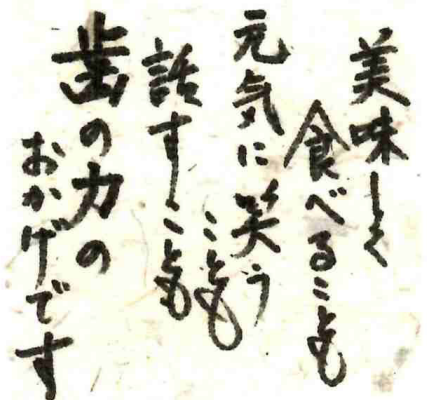 美味しく
食べることも
元気に笑う
ことも
話すことも
歯の力の
おかげです